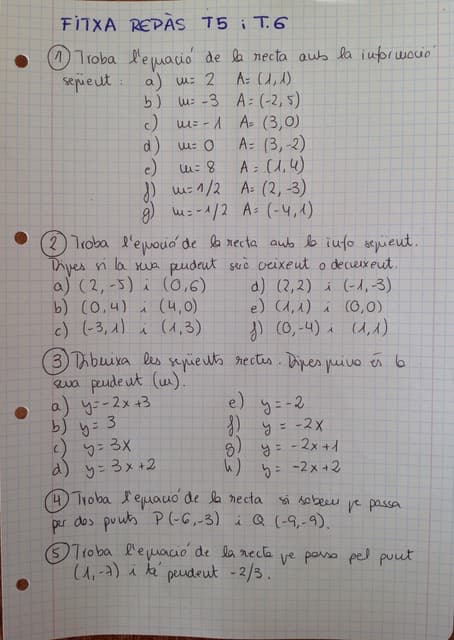 FITXA REPÀS T5 i T.6
① Troba l'equació de la recta amb la informació
següent: a) m= 2 A= (1,1)
b) m= -3 A= (-2, 5)
c) m= -1 A= (3,0)
d) m= 0 A= (3,-2)
e) m= 8 A= (1,4)
f) m= 1/2 A= (2, -3)
g) m= -1/2 A= (-4,1)
② Troba l'equació de la recta amb la info següent.
Digues si la seva pendent serà creixent o decreixent.
a) (2,-5) i (0,6) d) (2,2) i (-1,-3)
b) (0,4) i (4,0) e) (1,1) i (0,0)
c) (-3,1) i (1,3) f) (0,-4) i (1,1)
③ Dibuixa les següents rectes. Digues quina és la
seva pendent (m).
a) y=-2x+3 e) y=-2
b) y= 3 f) y = -2x
c) y= 3x g) y= -2x+1
d) y= 3x+2 h) y= -2x+2
④ Troba l'equació de la recta si sabem que passa
per dos punts P(-6,-3) i Q (-9,-9).
⑤ Troba l'equació de la recta que passa pel punt
(1,-7) i té pendent -2/3.